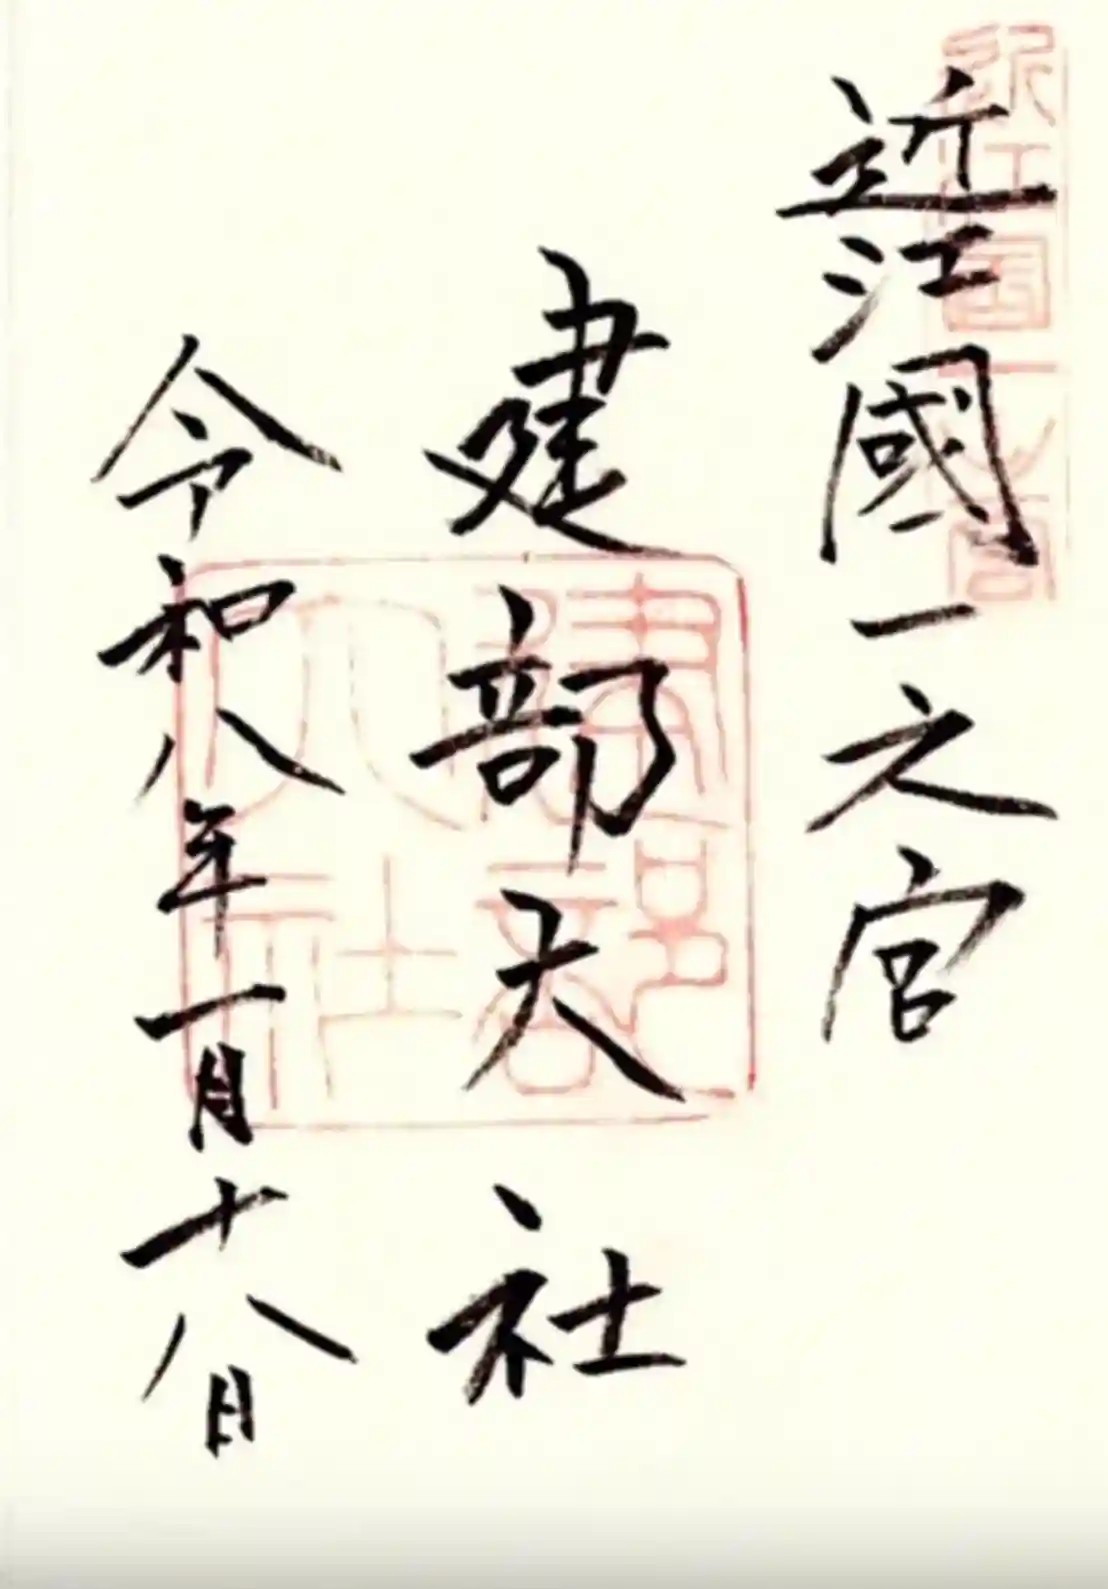 近江國一之宮
建部大社
令和八年一月十八日
近江国一之宮
建部大社